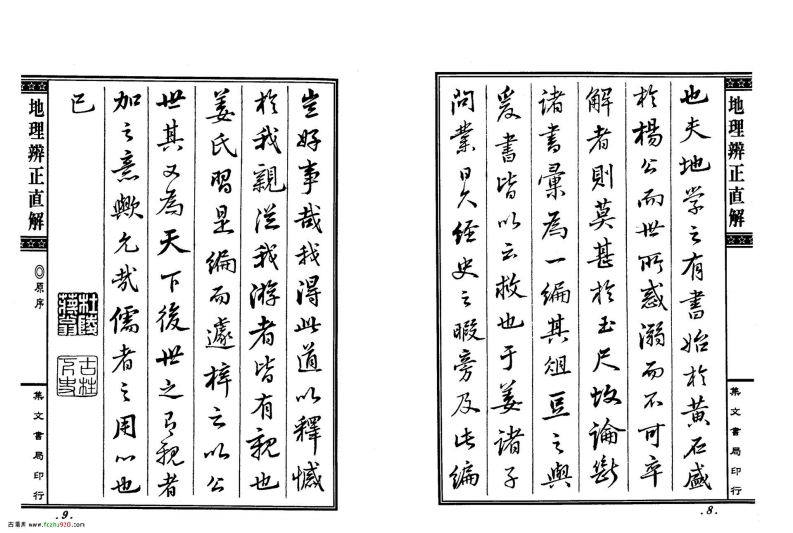 地理辨正直解
集文書局印行
也夫地學之有書始於黃石盛
於楊公而世所惑溺而不可卒
解者則莫甚於玉尺故論斷
諸書彙為一編其俎豆之與
爰書皆以云救也于姜諸子
問業日久經史之暇旁及此編
.8.
豈好事哉我得此道以釋憾
於我親從我游者皆有親也
姜氏習是編而遽梓之以公
世其又為天下後世之有親者
加之意歟允哉儒者之用心也
已
杜陵
古柱
下史
地理辨正直解
◎原序
集文書局印行
.9.
www.fczhu920.com